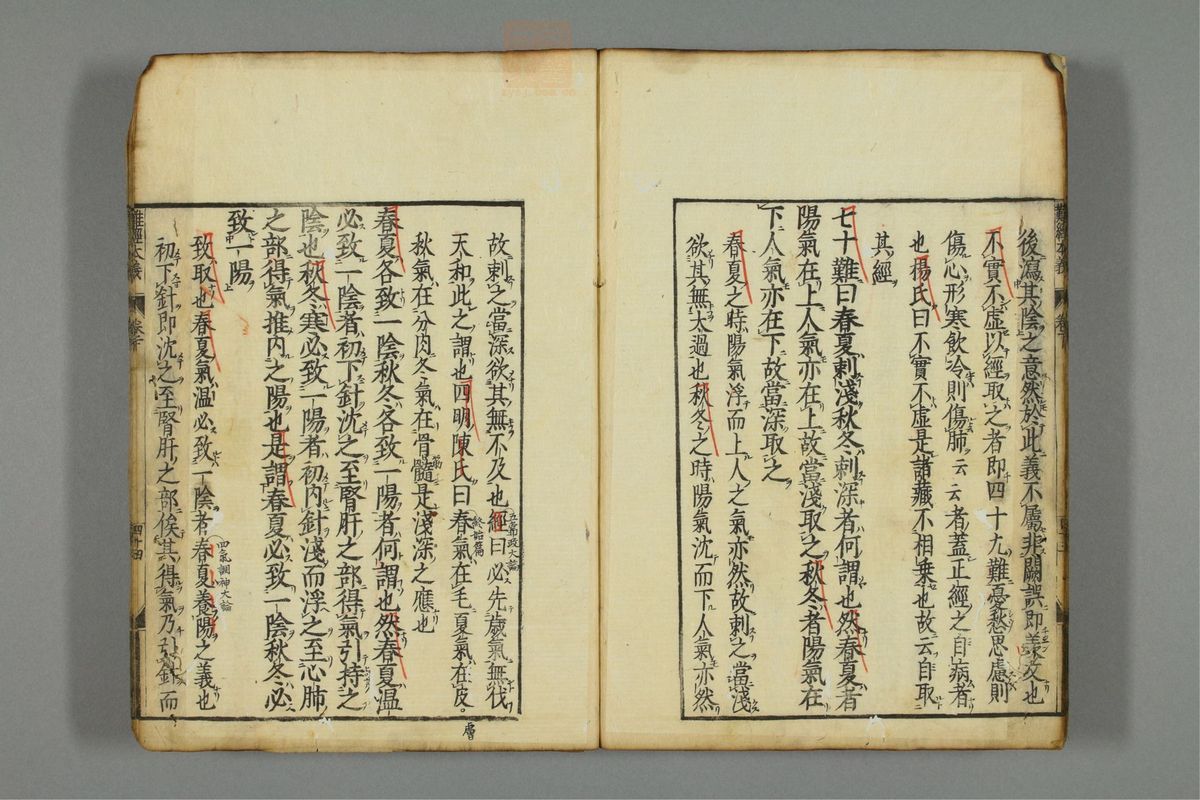 後瀉其陰之意然於此義不屬非闕誤即羨文也
不實不虛以經取之者即四十九難憂愁思慮則
傷心形寒飲冷則傷肺云云者蓋正經之自病者
也楊氏曰不實不虛是諸藏不相乘也故云自取
其經
七十難曰春夏刺淺秋冬刺深者何謂也然春夏者
陽氣在上人氣亦在上故當淺取之秋冬者陽氣在
下人氣亦在下故當深取之
春夏之時陽氣浮而上人之氣亦然故刺之當淺
欲其無太過也秋冬之時陽氣沈而下人氣亦然
故刺之當深欲其無不及也經曰必先歲氣無伐
五常政大論
天和此之謂也四明陳氏曰春氣在毛夏氣在皮
終始篇
秋氣在分肉冬氣在骨髓是淺深之應也
筋
春夏各致一陰秋冬各致一陽者何謂也然春夏温
必致一陰者初下針沈之至腎肝之部得氣引持之
陰也秋冬寒必致一陽者初内針淺而浮之至心肺
之部得氣推内之陽也是謂春夏必致一陰秋冬必
致一陽
致取也春夏氣温必致一陰者春夏養陽之義也
四氣調神大論
初下針即沈之至腎肝之部俟其得氣乃引針而
難經本義